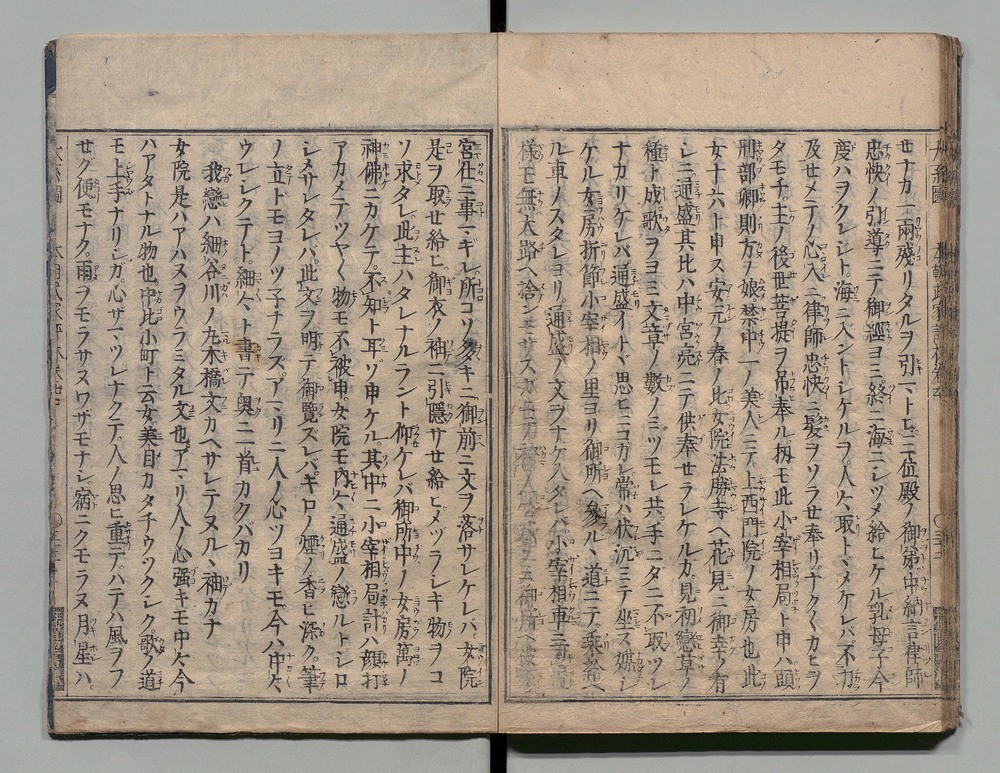 セナカ一兩殘リタルヲ引マトヒ二位殿ノ御弟中納言律師
忠快ノ引導ニテ御經ヨミ終ニ海ニシツメ給ヒケル乳母子今
度ハヲクレシト海ニ入ントシケルヲ人々取トヽメケレバ不力
及せメテノ心入ニ律師忠快ニ髪ヲソラせ奉リナクヽカヒヲ
タモチ主ノ後世菩提ヲ吊奉ル抑モ此小宰相局ト申ハ頭
刑部卿則方ノ娘禁中一ノ美人ニテ上西門院ノ女房也此
女十六ト申ス安元ノ春ノ比女院法勝寺ヘ花見ニ御幸ノ有
シニ通盛其比ハ中宮亮ニテ供奉せラレケルカ見初戀草ノ
種ト成歌ヲヨミ文章ノ數ノミツモレ共手ニタニ不取ツレ
ナカリケレバ通盛イトヽ思ヒニコガレ常ハ伏沉ミテ坐ス
ケル女房折節小宰相ノ里ヨリ御所ヘ參ルヽ道ニテ乘給ヘ
ル車ノスタレヨリ通盛ノ文ヲナケ入タレバ小宰相車ニ可
様モ無大路ヘ捨ンモサスガ
宮仕ニ事マギレ所コソ多キニ御前ニ文ヲ落サレケレバ女院
是ヲ取せ給ヒ御衣ノ袖ニ引隱サせ給ヒメツラレキ物ヲコ
ソ求タレ此主ハタレナルラント仰ケレバ御所中ノ女房萬ノ
神佛ニカケテ不知ト耳ソ申ケル其中ニ小宰相局計ハ顔打
アカメテツヤく物モ不被申女院モ内々通盛ノ戀ルトシロ
シメサレタレバ此文ヲ明テ御覽ズレバギロノ煙ノ香ヒ深ク筆
ノ立トモヨノツ子ナラズアマリニ人ノ心ツヨキモ今ハ中々
ウレシクテト細々ト書テ奥ニ一首カクバカリ
我戀ハ細谷川ノ丸木橋文カヘサレテヌルヽ袖カナ
女院是ハアハヌヲウラミタル文也アマリ人ノ心強キモ中々今
ハアタトナル物也中比小町ト云女美目カタチウツクシク歌ノ道
モ上手ナリシガ心ザマツレナクテ人ノ思ヒ重テハテハ風ヲフ
せグ便モナク雨ヲモラサヌワザモナシ宿ニクモラヌ月星ハ